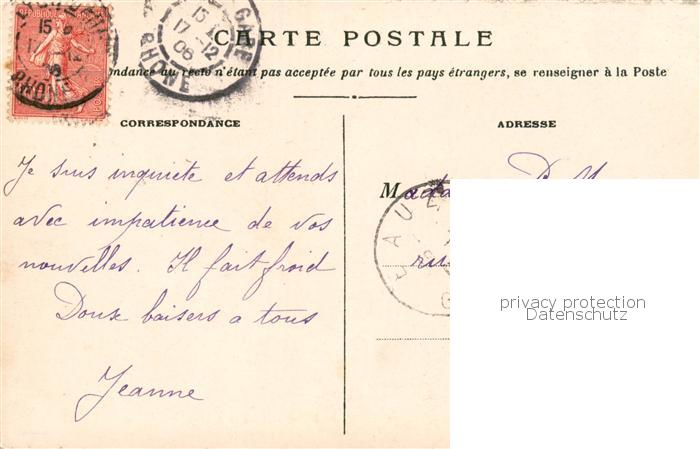 CARTE POSTALE
ndance au recto n'étant pas acceptée par tous les pays étrangers, se renseigner à la Poste
CORRESPONDANCE
Je suis inquiète et attends
avec impatience de vos
nouvelles. Il fait froid
Doux baisers a tous
Jeanne
ADRESSE
15
17 12
06
GARE
RHONE
15
RHONE
EAU
privacy protection
Datenschutz